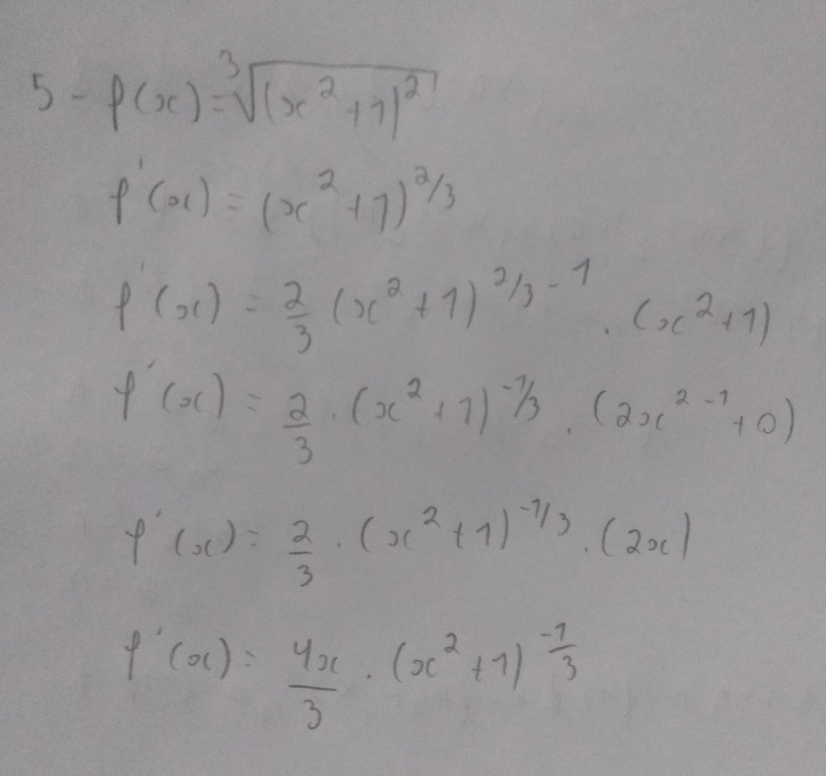 5 - f(x) = ∛(x² + 1)²
f'(x) = (x² + 1)^2/3
f'(x) = 2/3 (x² + 1)^2/3 - 1 . (x² + 1)
f'(x) = 2/3 . (x² + 1)^-1/3 . (2x^2-1 + 0)
f'(x) = 2/3 . (x² + 1)^-1/3 . (2x)
f'(x) = 4x/3 . (x² + 1)^-1/3